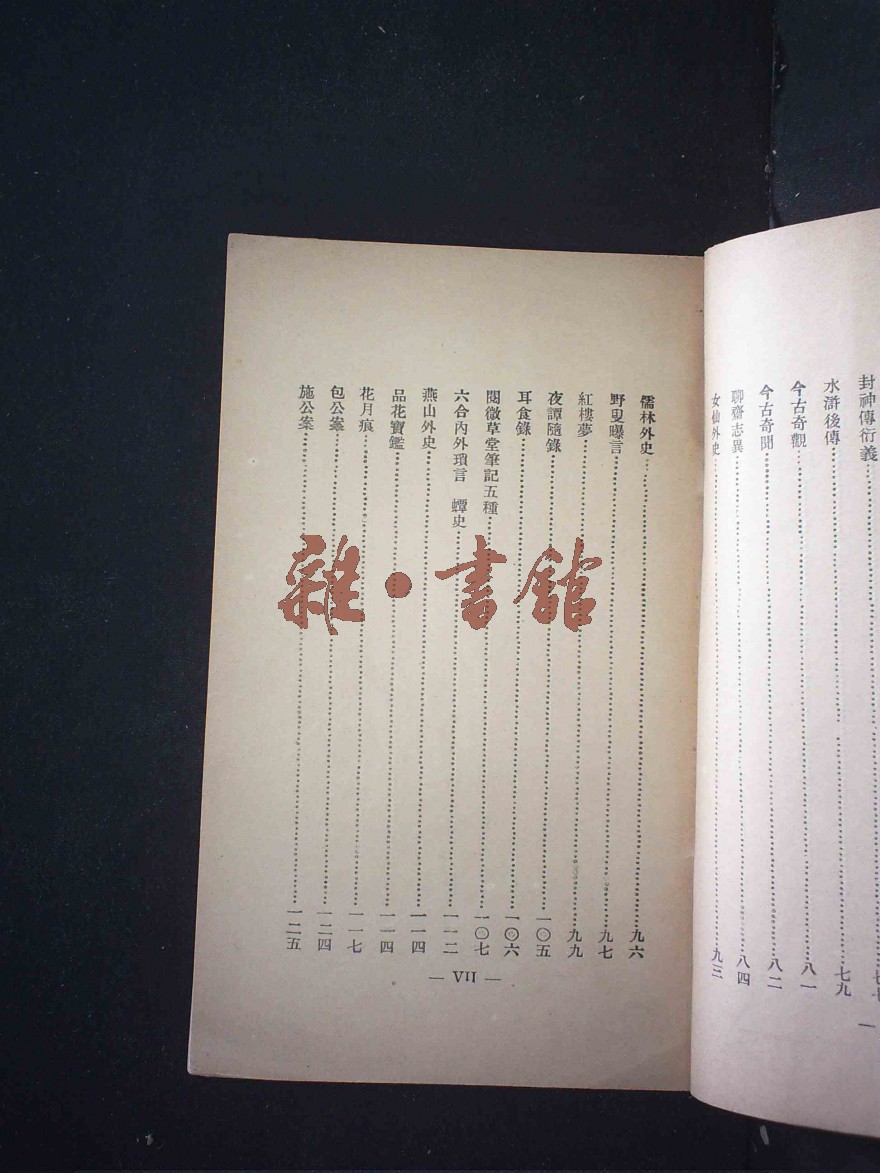 封神傳衍義……七七
水滸後傳……七九
今古奇觀……八一
今古奇聞……八二
聊齋志異……八四
女仙外史……九三
儒林外史……九六
野叟曝言……九七
紅樓夢……九九
夜譚隨錄……一〇五
耳食錄……一〇六
閱微草堂筆記五種……一〇七
六合內外瑣言　蟫史……一一二
燕山外史……一一四
品花寶鑑……一一四
花月痕……一一七
包公案……一二四
施公案……一二五
— VII —
雜·書館